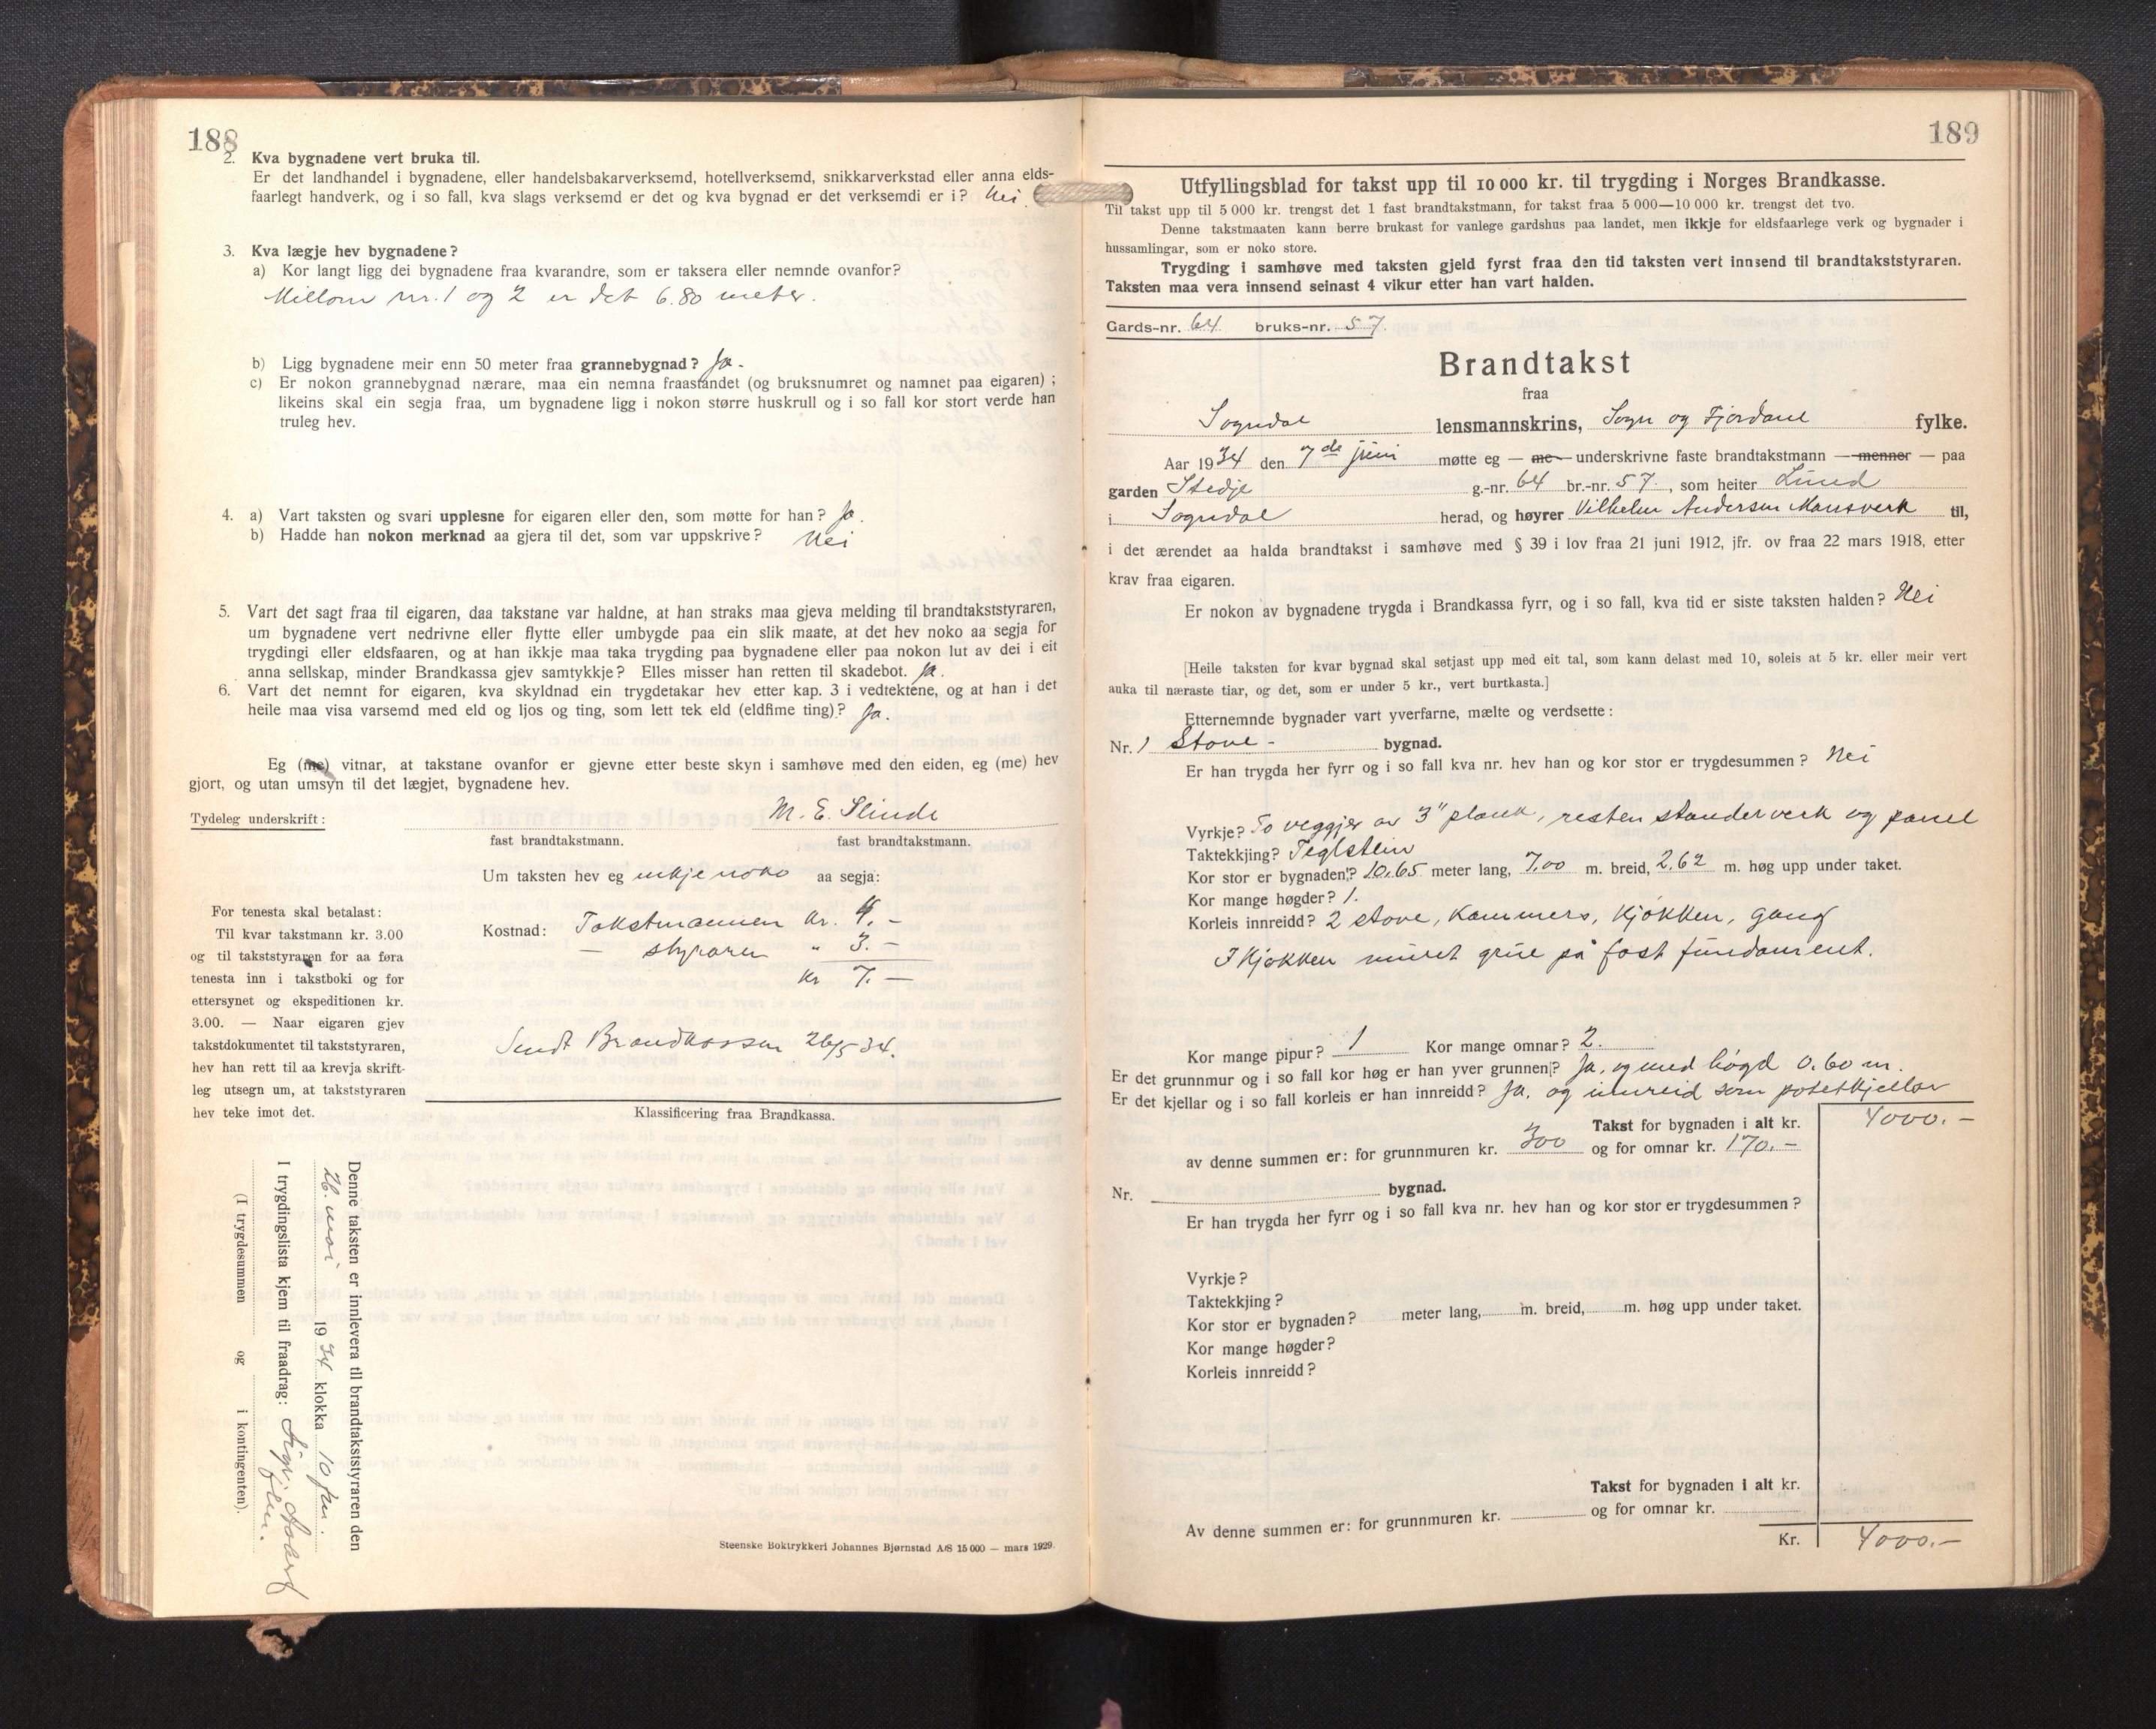 188
2. Kva bygnadene vert bruka til.
Er det landhandel i bygnadene, eller handelsbakarverksemd, hotellverksemd, snikkarverkstad eller anna elds-
faarlegt handverk, og i so fall, kva slags verksemd er det og kva bygnad er det verksemdi er i? Nei.
3. Kva lægje hev bygnadene?
a) Kor langt ligg dei bygnadene fraa kvarandre, som er taksera eller nemnde ovanfor?
Millom nr. 1 og 2 er det 6.80 meter.
b) Ligg bygnadene meir enn 50 meter fraa grannebygnad? Ja.
c) Er nokon grannebygnad nærare, maa ein nemna fraastandet (og bruksnumret og namnet paa eigaren);
likeins skal ein segja fraa, um bygnadene ligg i nokon større huskrull og i so fall kor stort verde han
truleg hev.
4. a) Vart taksten og svari upplesne for eigaren eller den, som møtte for han? Ja.
b) Hadde han nokon merknad aa gjera til det, som var uppskrive? Nei
5. Vart det sagt fraa til eigaren, daa takstane var haldne, at han straks maa gjeva melding til brandtakststyraren,
um bygnadene vert nedrivne eller flytte eller umbygde paa ein slik maate, at det hev noko aa segja for
trygdingi eller eldsfaaren, og at han ikkje maa taka trygding paa bygnadene eller paa nokon lut av dei i eit
anna sellskap, minder Brandkassa gjev samtykkje? Elles misser han retten til skadebot. Ja.
6. Vart det nemnt for eigaren, kva skyldnad ein trygdetakar hev etter kap. 3 i vedtektene, og at han i det
heile maa visa varsemd med eld og ljos og ting, som lett tek eld (eldfime ting)? Ja.
Eg (me) vitnar, at takstane ovanfor er gjevne etter beste skyn i samhøve med den eiden, eg (me) hev
gjort, og utan umsyn til det lægjet, bygnadene hev.
Tydeleg underskrift: M. E. Slinde
fast brandtakstmann. fast brandtakstmann.
Um taksten hev eg inkje noko aa segja:
Kostnad: Takstmannen kr. 4.-
— styraren " 3.-
kr 7.-
Sendt Brandkassen 26/5 34.
For tenesta skal betalast:
Til kvar takstmann kr. 3.00
og til takststyraren for aa føra
tenesta inn i takstboki og for
ettersynet og ekspeditionen kr.
3.00. — Naar eigaren gjev
takstdokumentet til takststyraren,
hev han rett til aa krevja skrift-
leg utsegn um, at takststyraren
hev teke imot det.
Klassificering fraa Brandkassa.
Denne taksten er innlevera til brandtakststyraren den
26. mai 1934 klokka 10 fm.
I trygdingslista kjem til fraadrag:
(I trygdesummen og i kontingenten).
Steenske Boktrykkeri Johannes Bjørnstad A/S 15 000 — mars 1929.
189
Utfyllingsblad for takst upp til 10 000 kr. til trygding i Norges Brandkasse.
Til takst upp til 5 000 kr. trengst det 1 fast brandtakstmann, for takst fraa 5 000—10 000 kr. trengst det tvo.
Denne takstmaaten kann berre brukast for vanlege gardshus paa landet, men ikkje for eldsfaarlege verk og bygnader i
hussamlingar, som er noko store.
Trygding i samhøve med taksten gjeld fyrst fraa den tid taksten vert innsend til brandtakststyraren.
Taksten maa vera innsend seinast 4 vikur etter han vart halden.
Gards-nr. 64 bruks-nr. 57.
Brandtakst
fraa
Sogndal lensmannskrins, Sogn og Fjordane fylke.
Aar 1934 den 7de juni møtte eg — me — underskrivne faste brandtakstmann — menner — paa
garden Stedje g.-nr. 64 br.-nr. 57., som heiter Lund
i Sogndal herad, og høyrer Vilhelm Andersen Mansverk til,
i det ærendet aa halda brandtakst i samhøve med § 39 i lov fraa 21 juni 1912, jfr. ov fraa 22 mars 1918, etter
krav fraa eigaren.
Er nokon av bygnadene trygda i Brandkassa fyrr, og i so fall, kva tid er siste taksten halden? Nei
[Heile taksten for kvar bygnad skal setjast upp med eit tal, som kann delast med 10, soleis at 5 kr. eller meir vert
auka til næraste tiar, og det, som er under 5 kr., vert burtkasta.]
Etternemnde bygnader vart yverfarne, mælte og verdsette:
Nr. 1 Stove- bygnad.
Er han trygda her fyrr og i so fall kva nr. hev han og kor stor er trygdesummen? Nei
Vyrkje? To veggjer av 3" plank, resten standerverk og panel
Taktekkjing? Teglstein
Kor stor er bygnaden? 10.65 meter lang, 7.00 m. breid, 2.62 m. høg upp under taket.
Kor mange høgder? 1.
Korleis innreidd? 2 stove, kammers, kjøkken, gang
I kjøkken muret grue på fast fundament.
Kor mange pipur? 1 Kor mange omnar? 2.
Er det grunnmur og i so fall kor høg er han yver grunnen? Ja, og med høgd 0.60 m.
Er det kjellar og i so fall korleis er han innreidd? Ja, og innreid som potetkjellar
Takst for bygnaden i alt kr. 4000.-
av denne summen er: for grunnmuren kr. 300 og for omnar kr. 170.-
Nr. bygnad.
Er han trygda her fyrr og i so fall kva nr. hev han og kor stor er trygdesummen?
Vyrkje?
Taktekkjing?
Kor stor er bygnaden? meter lang, m. breid, m. høg upp under taket.
Kor mange høgder?
Korleis innreidd?
Takst for bygnaden i alt kr.
Av denne summen er: for grunnmuren kr. og for omnar kr.
Kr. 4000.-